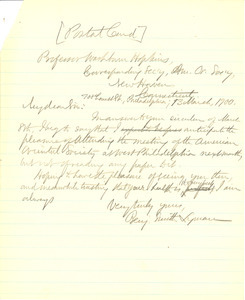 [Postal Card]
Professor Washburn Hopkins,
Corresponding Secy, Am. Or. Socy,
New Haven
Connecticut
Philadelphia, 12 March, 1900.
My dear Sir:
In answer to your circular of March
8th I beg to say that I anticipate the
pleasure of attending the meeting of the American
Oriental Society at Philadelphia next month,
but not of reading any paper
Hoping to have the pleasure of seeing you then,
and meanwhile trusting that your health is I am
always
Very truly yours,
Benj. Smith Lyman